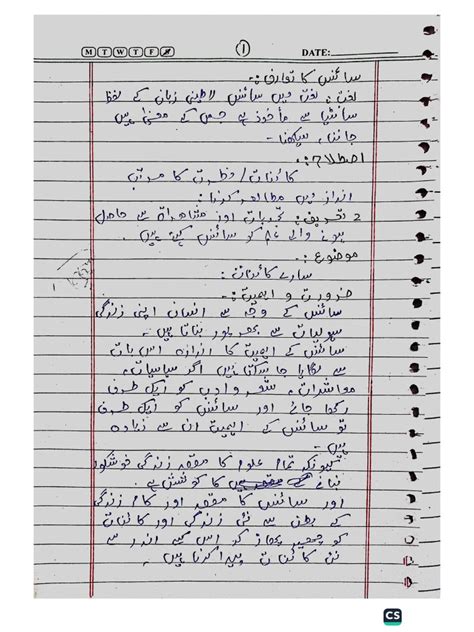 M T W T F S
1
DATE:
سائنس کا تعارف :-
لغت : لغت میں سائنس لاطینی زبان کے لفظ
سائنٹیا سے مأخوذ ہے جس کے معنیٰ ہیں
جاننا ، سیکھنا -
اصطلاح :-
کائنات / فطرت کا مرتب
انداز میں مطالعہ کرنا :
2 تعریف : تجربات اور مشاھداۃ سے حاصل
ہونے والے علم کو سائنس کہتے ہیں -
موضوع :-
سارے کائنات :
ضرورت و اہمیت :-
سائنس کے وجہ سے انسان اپنی زندگی
سہولیات سے بھر پور بناتا ہیں -
سائنس کے اہمیت کا اندازہ اس بات
سے لگایا جا سکتا ہیں اگر سیاسیات ،
معاشرات ، شعر و ادب کو ایک طرف
رکھا جائے اور سائنس کو ایک طرف
تو سائنس کے اہمیت ان سے زیادہ
ہیں -
کیونکہ تمام علوم کا مقصد زندگی خوشگوار
بنانے کا کوشش ہے -
اور سائنس کا مقصد اور کام زندگی
کے بطن سے نئی زندگی اور کائنات
کو چھیر پھاڑ کو اس کے اندر سے
نئ کائنات پیدا کرنا ہیں -
CS